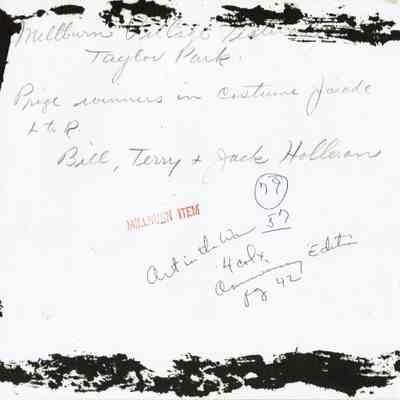 Millburn
Taylor Park.
Prize winners in Costume Parade
L to R.
Bill, Terry & Jack Holleran
79
57
MILLBURN ITEM
Art in the
4 cols
Edition
pg 42